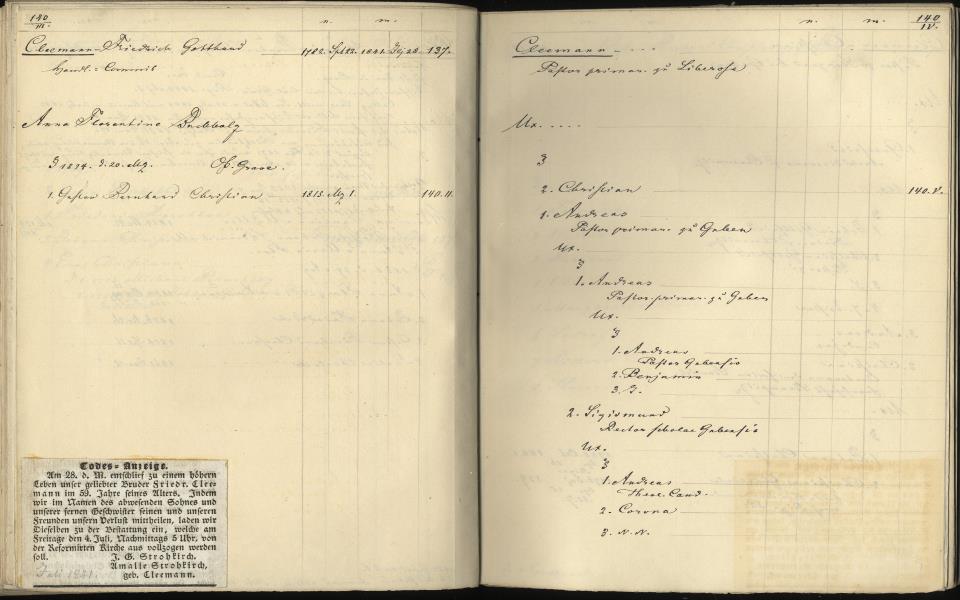 140
III.
n.
m.
Cleemann - Friedrich Gotthard 1782. Sept 22. 1841. 28. 137.
Handl.: Commis
Anna Florentine Buchholz
3 1834. d. 20. Mrz. Grave.
1. Gustav Bernhard Christian 1815. Mrz 1. 140. II.
Todes-Anzeige.
Am 28. d. M. entschlief zu einem höhern
Leben unser geliebter Bruder Friedr. Clee-
mann im 59. Jahre seines Alters. Indem
wir im Namen des abwesenden Sohnes und
unserer fernen Geschwister seinen und unseren
Freunden unsern Verlust mittheilen, laden wir
Dieselben zu der Bestattung ein, welche am
Freitage den 4. Juli, Nachmittags 5 Uhr, von
der Reformirten Kirche aus vollzogen werden
soll. J. G. Strohkirch.
Amalie Strohkirch,
geb. Cleemann.
Juli 1841.
n.
m.
140
IV.
Cleemann - ...
Pastor primar. zu Liberose
Ux. ....
3
2. Christian 140. V.
1. Andreas
Pastor primar. zu Guben
Ux.
3
1. Andreas
Pastor primar. zu Guben
Ux.
3
1. Andreas
Pastor Gubensis
2. Benjamin
3. J.
2. Sigismund
Rector scholae Gubensis
Ux.
3
1. Andreas
Theol. Cand.
2. Corona
3. N. N.